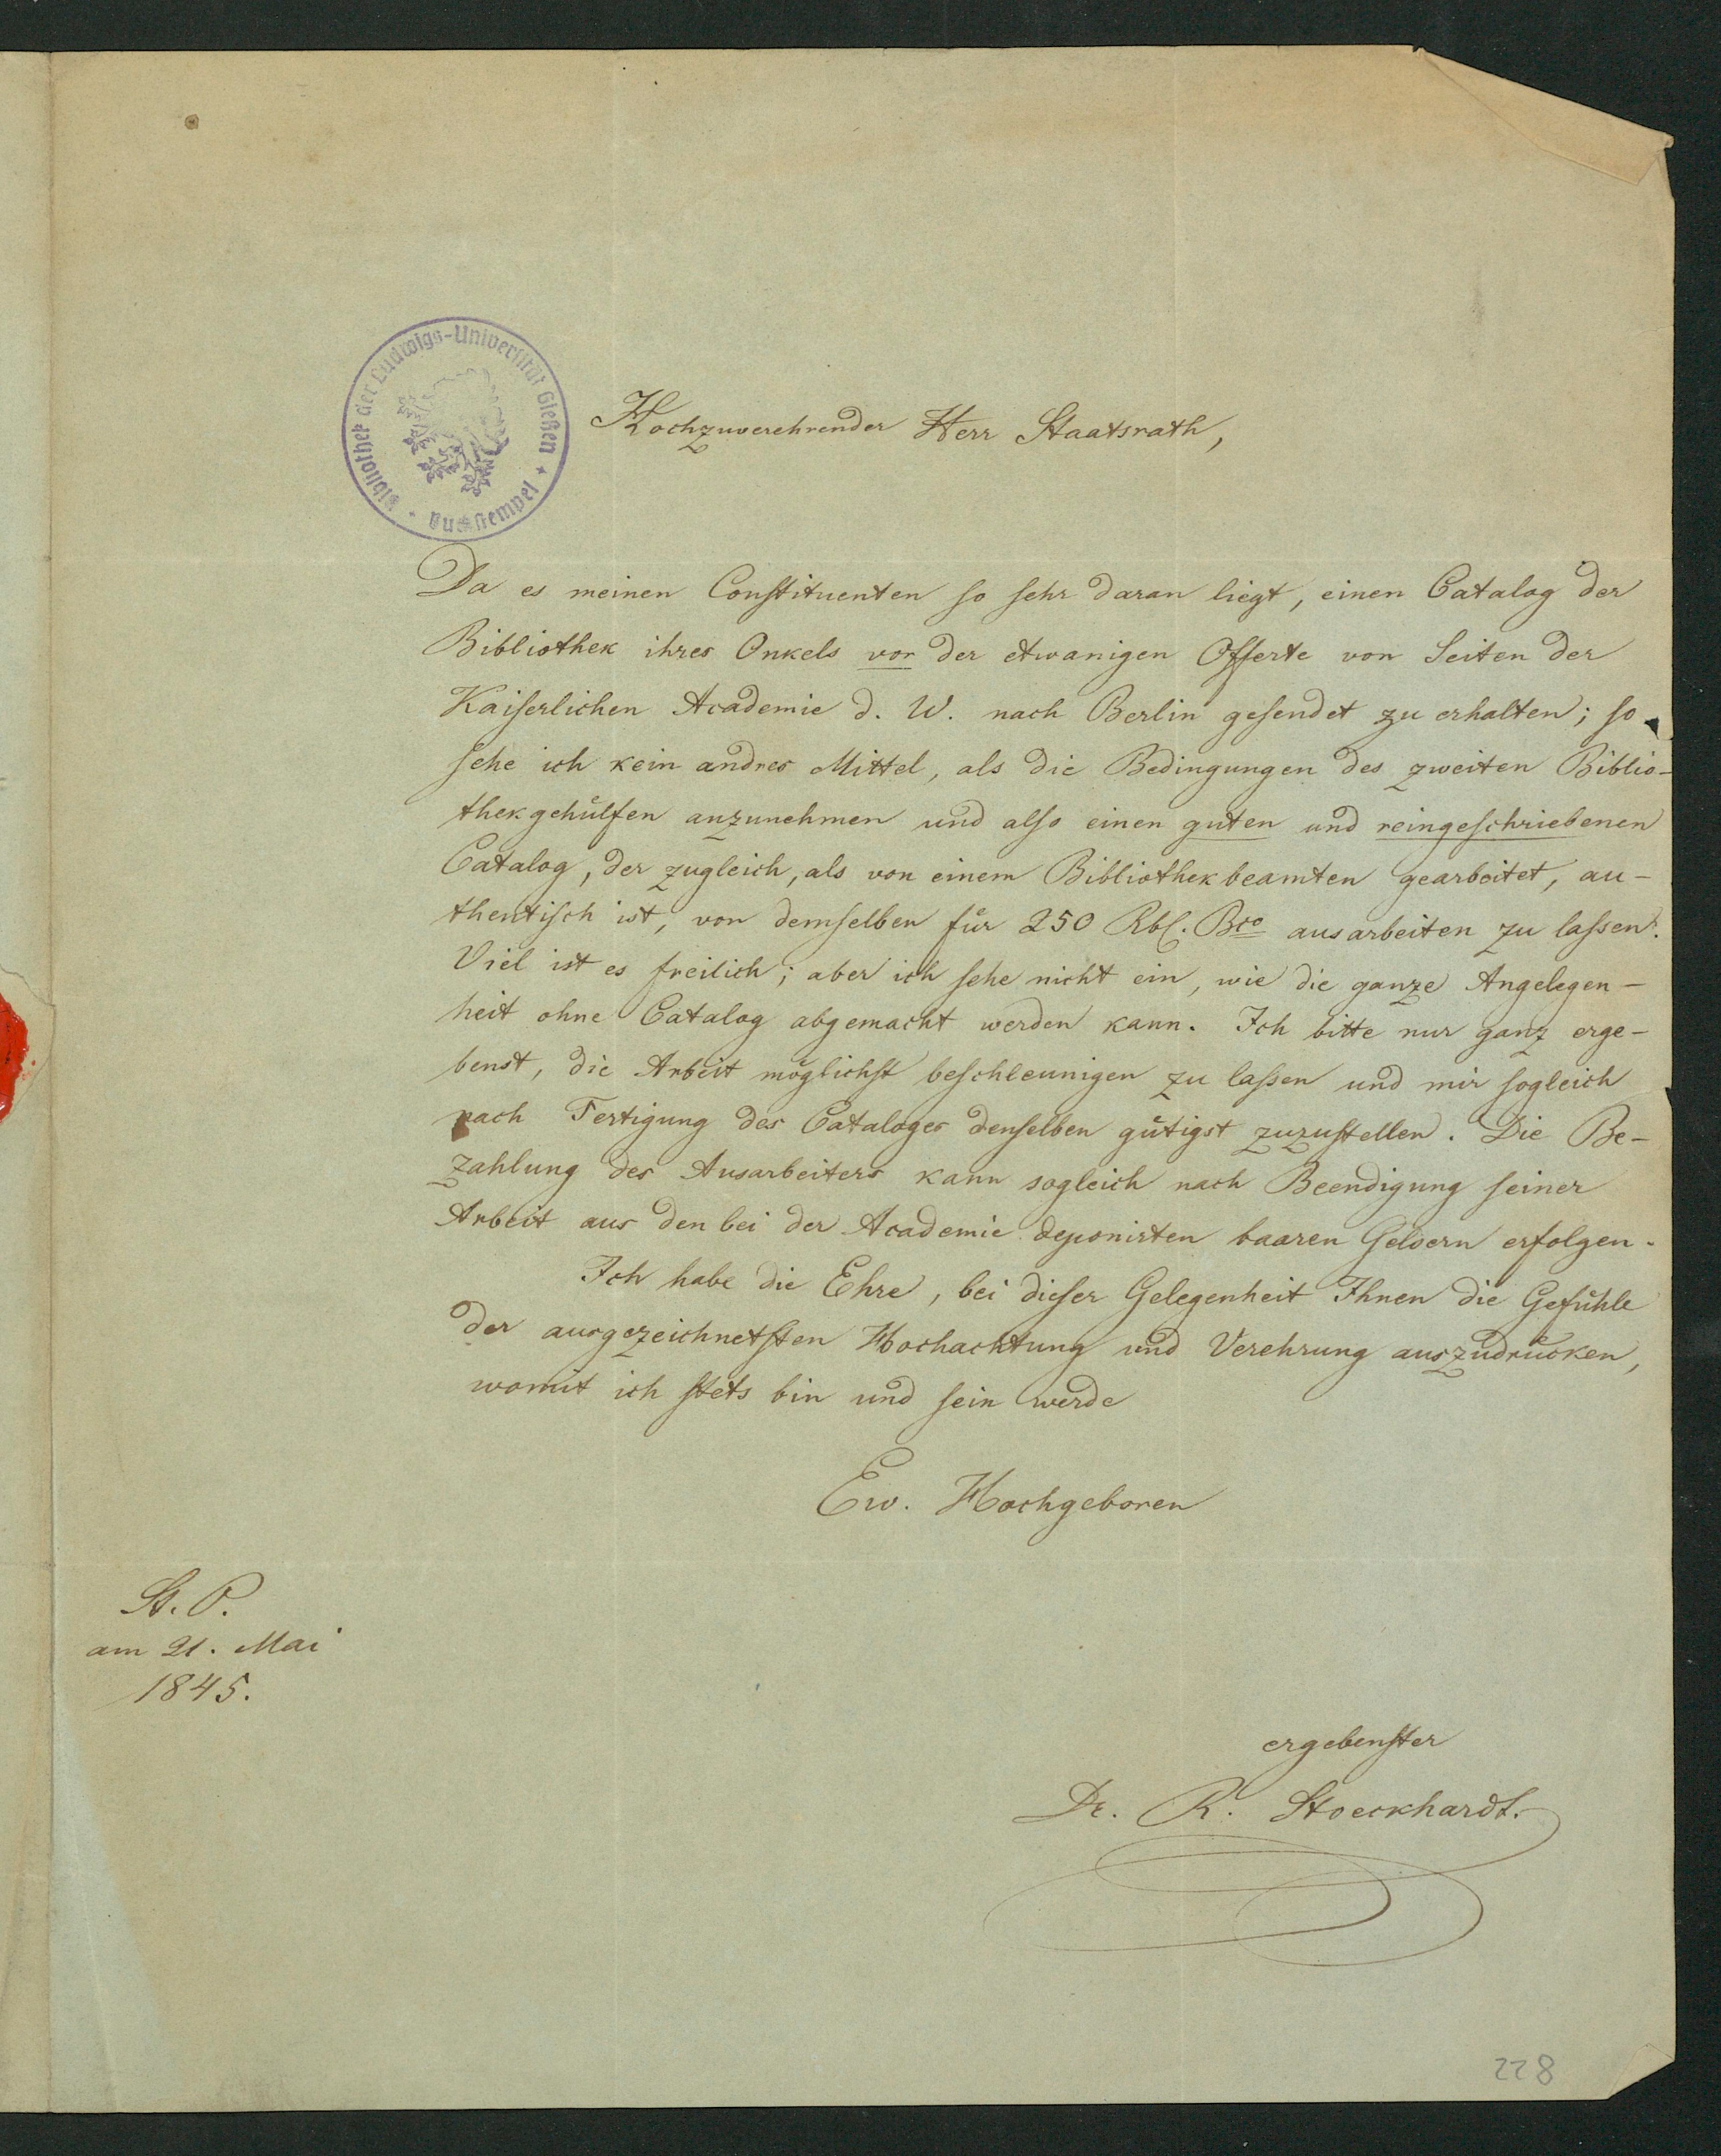 Bibliothek der Ludwigs-Universität Gießen
Hochzuverehrender Herr Staatsrath,
Da es meinen Constituenten so sehr daran liegt, einen Catalog der
Bibliothek ihres Onkels vor der etwanigen Offerte von Seiten der
Kaiserlichen Academie d. W. nach Berlin gesendet zu erhalten; so
sehe ich kein andres Mittel, als die Bedingungen des zweiten Biblio-
thekgehülfen anzunehmen und also einen guten und reingeschriebenen
Catalog, der zugleich, als von einem Bibliothekbeamten gearbeitet, au-
thentisch ist, von demselben für 250 Rbl. Bco ausarbeiten zu lassen.
Viel ist es freilich; aber ich sehe nicht ein, wie die ganze Angelegen-
heit ohne Catalog abgemacht werden kann. Ich bitte nur ganz erge-
benst, die Arbeit möglichst beschleunigen zu lassen und mir sogleich
nach Fertigung des Cataloges denselben gütigst zuzustellen. Die Be-
zahlung des Ausarbeiters kann sogleich nach Beendigung seiner
Arbeit aus den bei der Academie deponirten baaren Geldern erfolgen.
Ich habe die Ehre, bei dieser Gelegenheit Ihnen die Gefühle
der ausgezeichnetsten Hochachtung und Verehrung auszudrücken,
womit ich stets bin und sein werde
Ew. Hochgeboren
St. P.
am 21. Mai
1845.
ergebenster
Dr. R. Stoeckhardt.
228